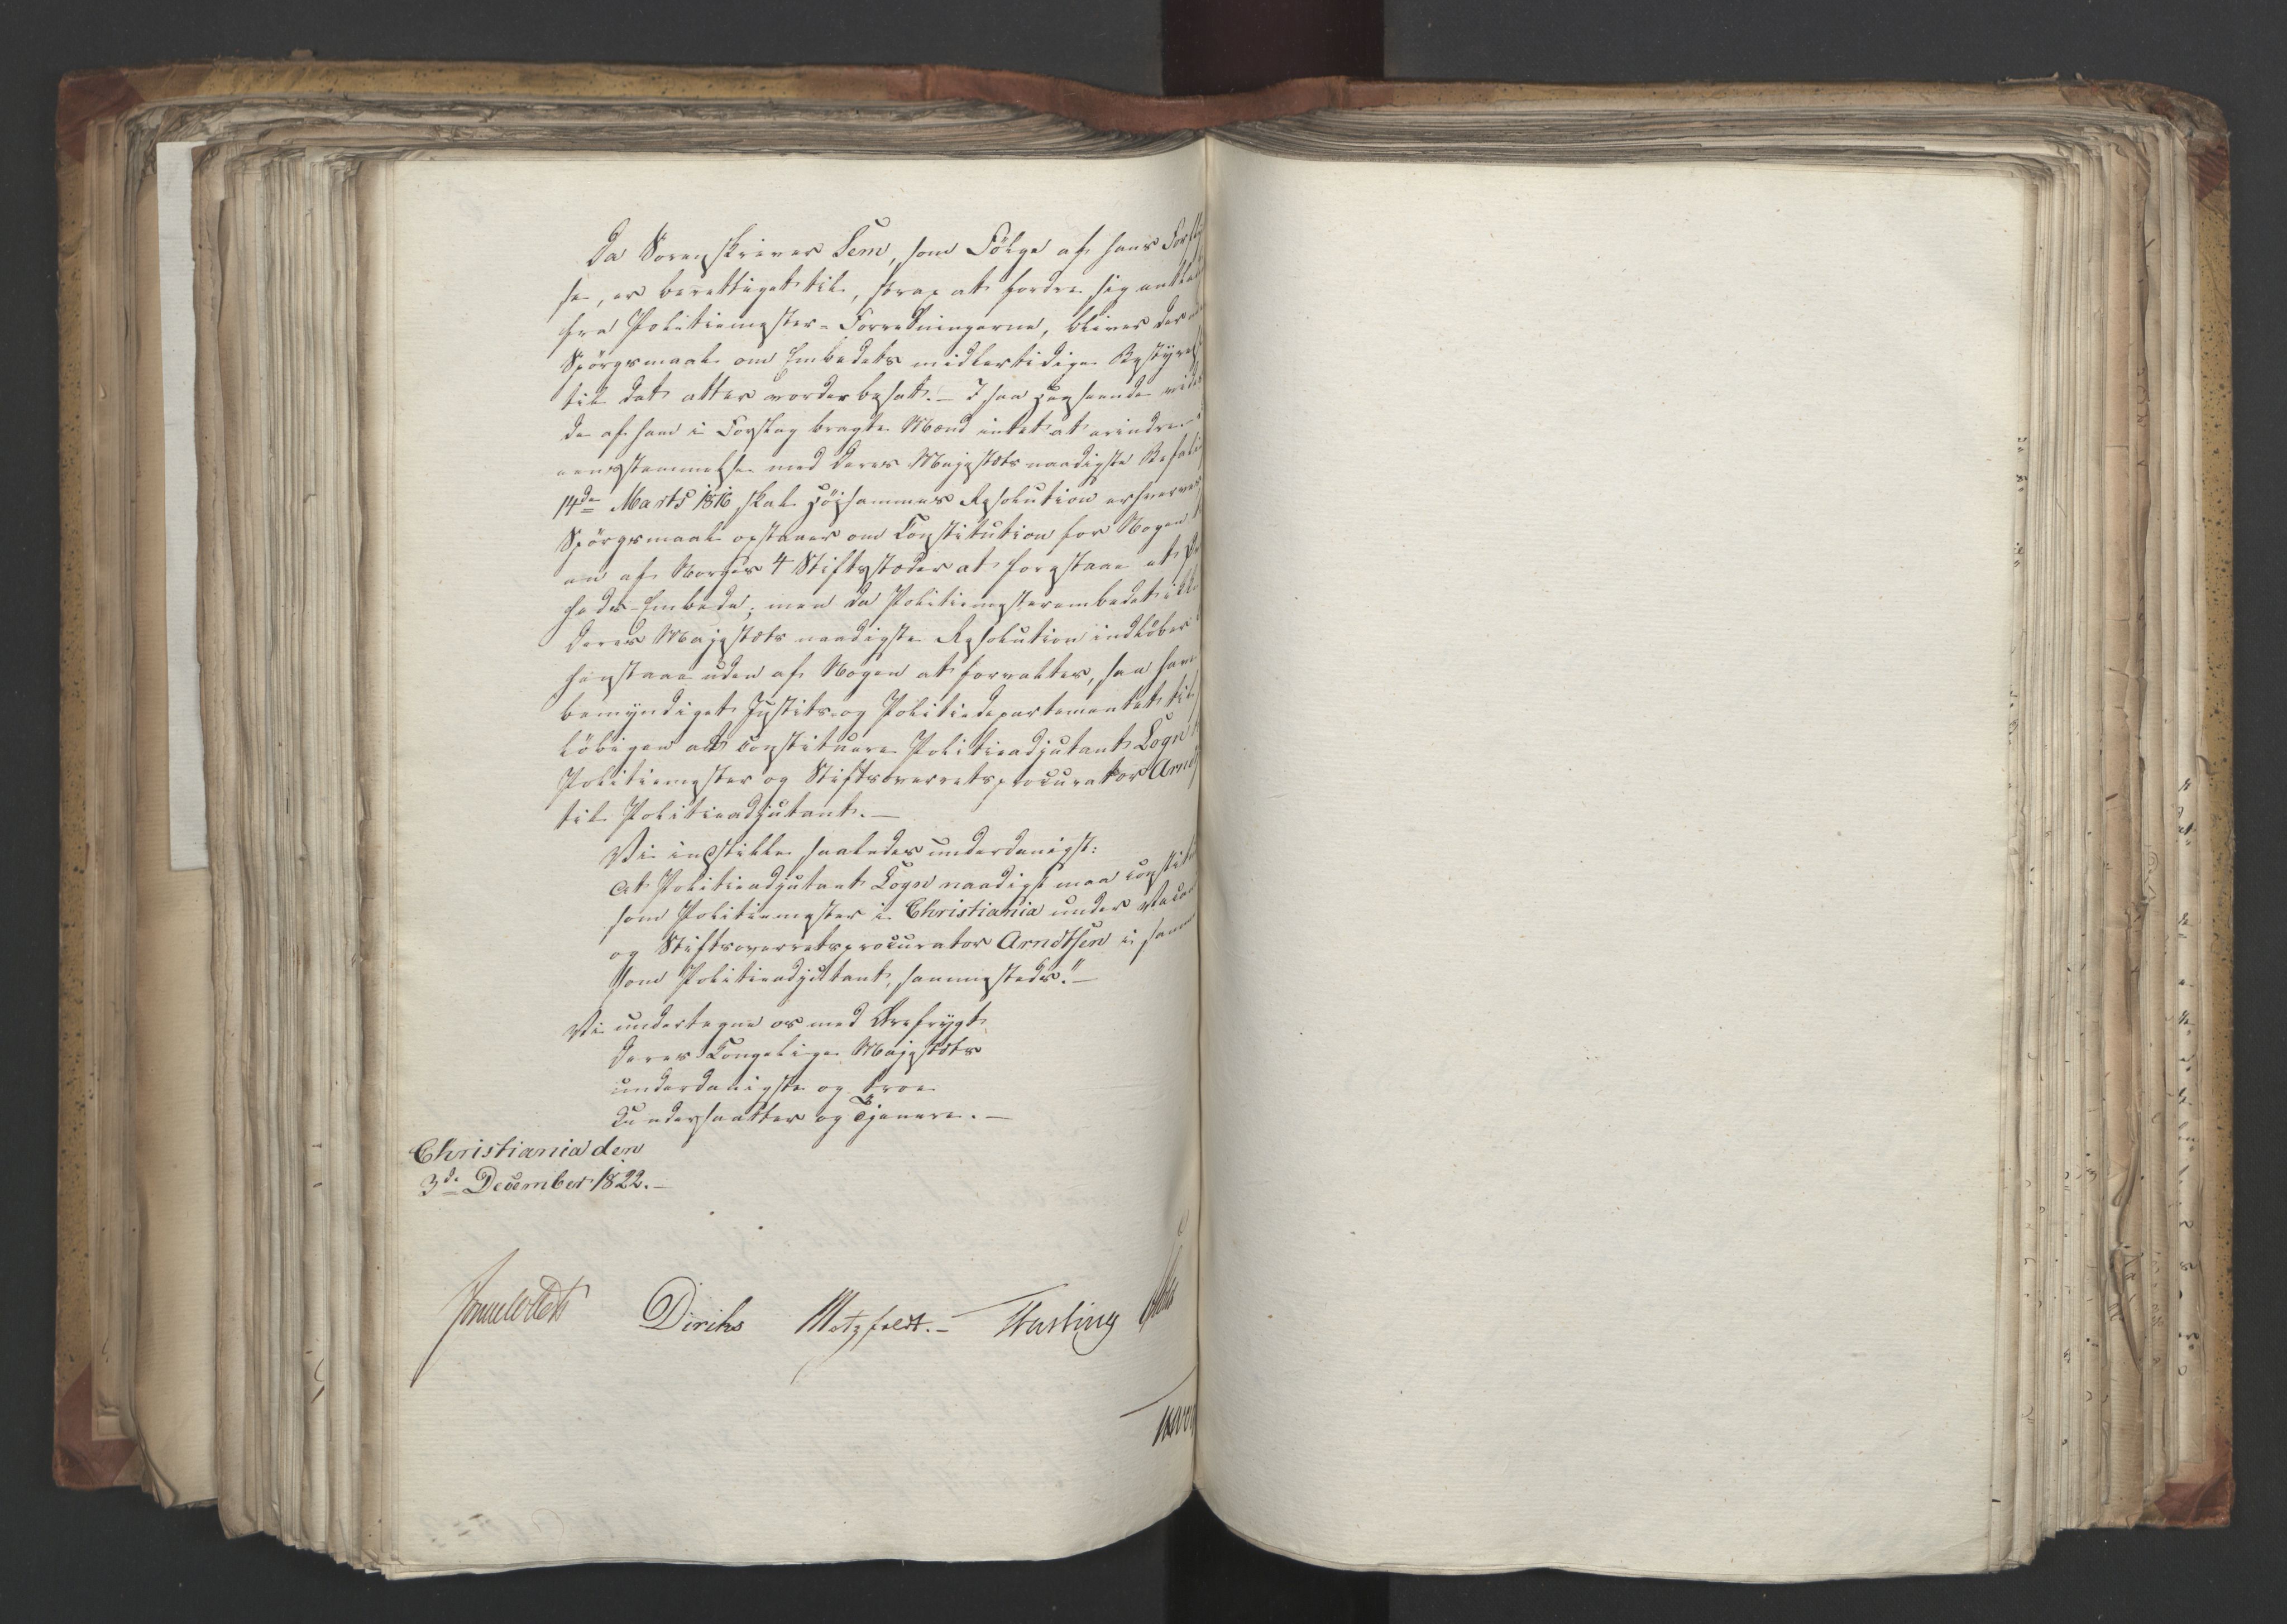 Da Sorenskriver Sem, som Følge af hans
se, er berettiget til, strax at fordre sig
fra Politiemester-Forretningerne, bliver der
Spørgsmaal om Embedets midlertidige
til det atter vorder besat. – I saa Henseende
de af ham i Forslag bragte Mænd intet at erindre.
eensstemmelse med Deres Majestæts naadigste
14de Marts 1816 skal Høisammes Resolution
Spørgsmaal opstaaer om Constitution for Nogen
en af Norges 4 Stiftstæder at forestaae et
heds-Embede; men da Politiemesterembedet
Deres Majestæts naadigste Resolution indløber
henstaae uden af Nogen at forvaltes, saa have
bemyndiget Justits- og Politiedepartementet
løbigen at constituere Politieadjutant Fogn
Politiemester og Stiftsoverretsprocurator
til Politieadjutant. –
Vi indstille saaledes underdanigst:
At Politieadjutant naadigst maa
som Politiemester i Christiania under
og Stiftsoverretsprocurator Arndtsen i
som Politieadjutant, sammesteds." –
Vi undertegne os med Ærefrygt
Deres Kongelige Majestæts
underdanigste og troe
Undersaatter og Tjenere. –
Christiania den
3de December 1822. –
Jonas Collett Diriks Motzfeldt. – Fasting